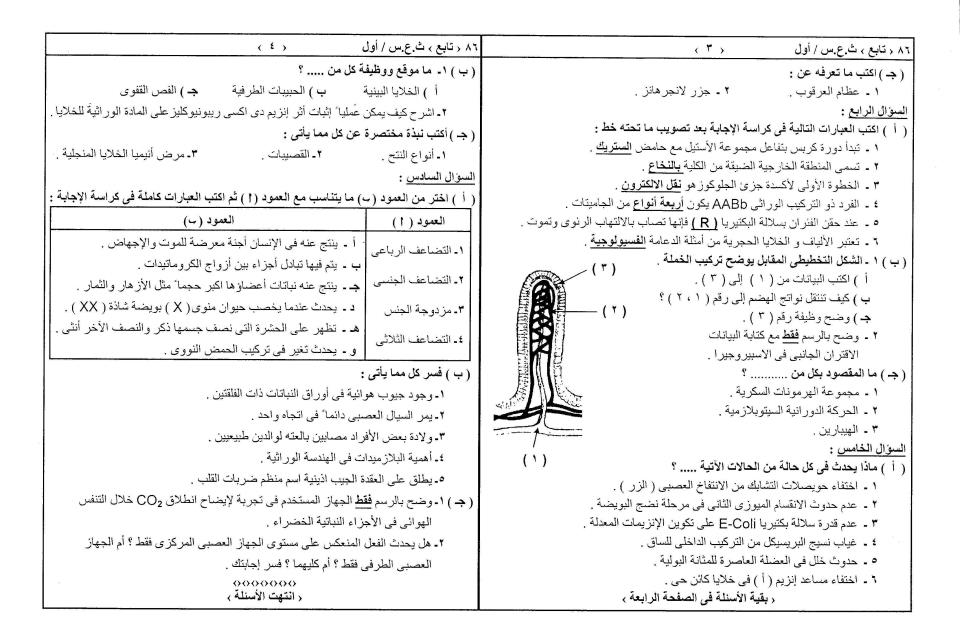 ٨٦ ‹ تابع › ث.ع.س / أول ‹ ٣ ›
( جـ ) اكتب ما تعرفه عن :
١ - عظام العرقوب . ٢ - جزر لانجرهانز .
السؤال الرابع :
( أ ) اكتب العبارات التالية فى كراسة الإجابة بعد تصويب ما تحته خط :
١ - تبدأ دورة كربس بتفاعل مجموعة الأستيل مع حامض الستريك .
٢ - تسمى المنطقة الخارجية الضيقة من الكلية بالنخاع .
٣ - الخطوة الأولى لأكسدة جزئ الجلوكوز هو نقل الالكترون .
٤ - الفرد ذو التركيب الوراثى AABb يكون أربعة أنواع من الجاميتات .
٥ - عند حقن الفئران بسلالة البكتيريا ( R ) فإنها تصاب بالالتهاب الرئوى وتموت .
٦ - تعتبر الألياف و الخلايا الحجرية من أمثلة الدعامة الفسيولوجية .
( ب ) ١ - الشكل التخطيطى المقابل يوضح تركيب الخملة .
أ ) اكتب البيانات من ( ١ ) إلى ( ٣ ) .
ب ) كيف تنتقل نواتج الهضم إلى رقم ( ١ ، ٢ ) ؟
جـ ) وضح وظيفة رقم ( ٣ ) .
٢ - وضح بالرسم فقط مع كتابة البيانات
الاقتران الجانبى فى الاسبيروجيرا .
( ٣ )
( ٢ )
( ١ )
( جـ ) ما المقصود بكل من ........... ؟
١ - مجموعة الهرمونات السكرية .
٢ - الحركة الدورانية السيتوبلازمية .
٣ - الهيبارين .
السؤال الخامس :
( أ ) ماذا يحدث فى كل حالة من الحالات الآتية ..... ؟
١ - اختفاء حويصلات التشابك من الانتفاخ العصبى ( الزر ) .
٢ - عدم حدوث الانقسام الميوزى الثانى فى مرحلة نضج البويضة .
٣ - عدم قدرة سلالة بكتيريا E-Coli على تكوين الإنزيمات المعدلة .
٤ - غياب نسيج البريسيكل من التركيب الداخلى للساق .
٥ - حدوث خلل فى العضلة العاصرة للمثانة البولية .
٦ - اختفاء مساعد إنزيم ( أ ) فى خلايا كائن حى .
‹ بقية الأسئلة فى الصفحة الرابعة ›
٨٦ ‹ تابع › ث.ع.س / أول ‹ ٤ ›
( ب ) ١- ما موقع ووظيفة كل من ..... ؟
أ ) الخلايا البينية ب ) الحبيبات الطرفية جـ ) الفص القفوى
٢- اشرح كيف يمكن عملياً إثبات أثر إنزيم دى اكسى ريبونيوكليز على المادة الوراثية للخلايا .
( جـ ) أكتب نبذة مختصرة عن كل مما يأتى :
١- أنواع النتح . ٢- القصيبات . ٣- مرض أنيميا الخلايا المنجلية .
السؤال السادس :
( أ ) اختر من العمود (ب) ما يتناسب مع العمود (أ) ثم اكتب العبارات كاملة فى كراسة الإجابة :
العمود ( أ ) العمود (ب)
١- التضاعف الرباعى
٢- التضاعف الجنسى
٣- مزدوجة الجنس
٤- التضاعف الثلاثى
أ - ينتج عنه فى الإنسان أجنة معرضة للموت والإجهاض .
ب - يتم فيها تبادل أجزاء بين أزواج الكروماتيدات .
جـ - ينتج عنه نباتات أعضاؤها اكبر حجماً مثل الأزهار والثمار .
د - يحدث عندما يخصب حيوان منوى ( X ) بويضة شاذة ( XX ) .
هـ - تظهر على الحشرة التى نصف جسمها ذكر والنصف الآخر أنثى .
و - يحدث تغير فى تركيب الحمض النووى .
( ب ) فسر كل مما يأتى :
١- وجود جيوب هوائية فى أوراق النباتات ذات الفلقتين .
٢- يمر السيال العصبى دائماً فى اتجاه واحد .
٣- ولادة بعض الأفراد مصابين بالعته لوالدين طبيعيين .
٤- أهمية البلازميدات فى الهندسة الوراثية .
٥- يطلق على العقدة الجيب اذينية اسم منظم ضربات القلب .
( جـ ) ١- وضح بالرسم فقط الجهاز المستخدم فى تجربة لإيضاح انطلاق CO2 خلال التنفس
الهوائى فى الأجزاء النباتية الخضراء .
٢- هل يحدث الفعل المنعكس على مستوى الجهاز العصبى المركزى فقط ؟ أم الجهاز
العصبى الطرفى فقط ؟ أم كليهما ؟ فسر إجابتك .
‹ انتهت الأسئلة ›